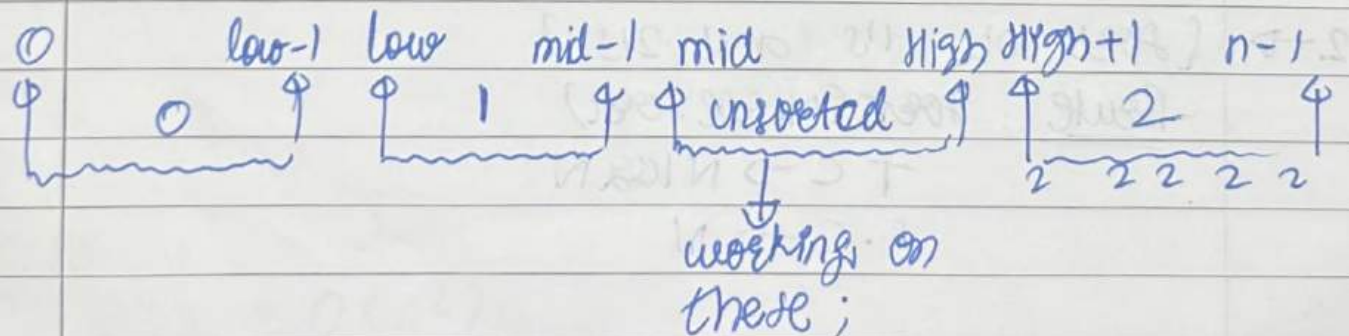 0 low-1 low mid-1 mid High High+1 n-1
0 1 unsorted 2
2 2 2 2 2
working on
these ;